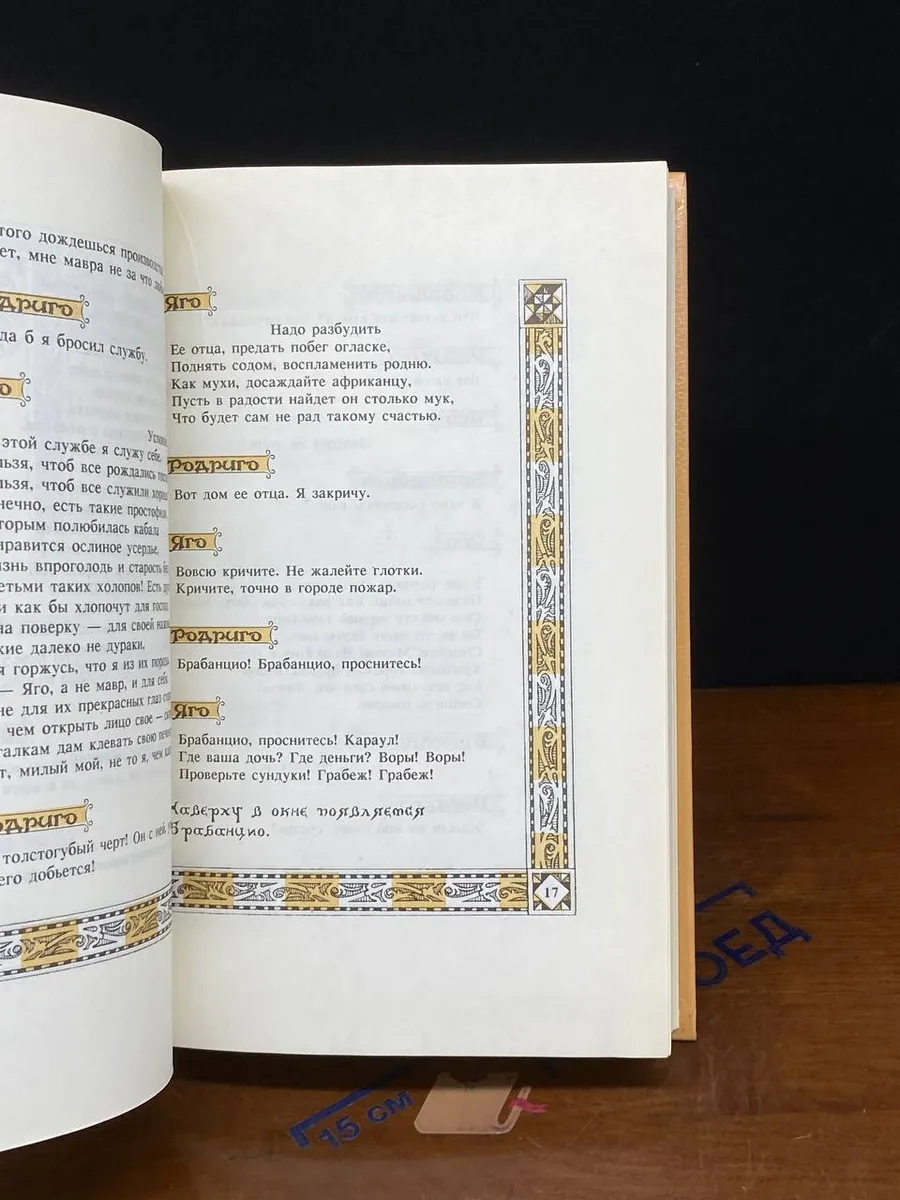 того дождешься
ет, мне мавра не за что
дриго
да б я бросил службу.
этой службе я служу себе.
чтоб все рождались
чтоб все служили
есть такие простофили,
полюбилась кабала
нравится ослиное усердье,
впроголодь и старость
таких холопов! Есть
и как бы хлопочут для
на поверку — для своей
далеко не дураки,
я горжусь, что я из их породы.
— Яго, а не мавр, и для себя,
не для их прекрасных глаз
чем открыть лицо свое —
галкам дам клевать свою
милый мой, не то я, чем
одриго
толстогубый черт! Он с ней,
его добьется!
Яго
Надо разбудить
Ее отца, предать побег огласке,
Поднять содом, воспламенить родню.
Как мухи, досаждайте африканцу,
Пусть в радости найдет он столько мук,
Что будет сам не рад такому счастью.
Родриго
Вот дом ее отца. Я закричу.
Яго
Вовсю кричите. Не жалейте глотки.
Кричите, точно в городе пожар.
Родриго
Брабанцио! Брабанцио, проснитесь!
Яго
Брабанцио, проснитесь! Караул!
Где ваша дочь? Где деньги? Воры! Воры!
Проверьте сундуки! Грабеж! Грабеж!
Наверху в окне появляется
Брабанцио.
17
ОЕД
15 см